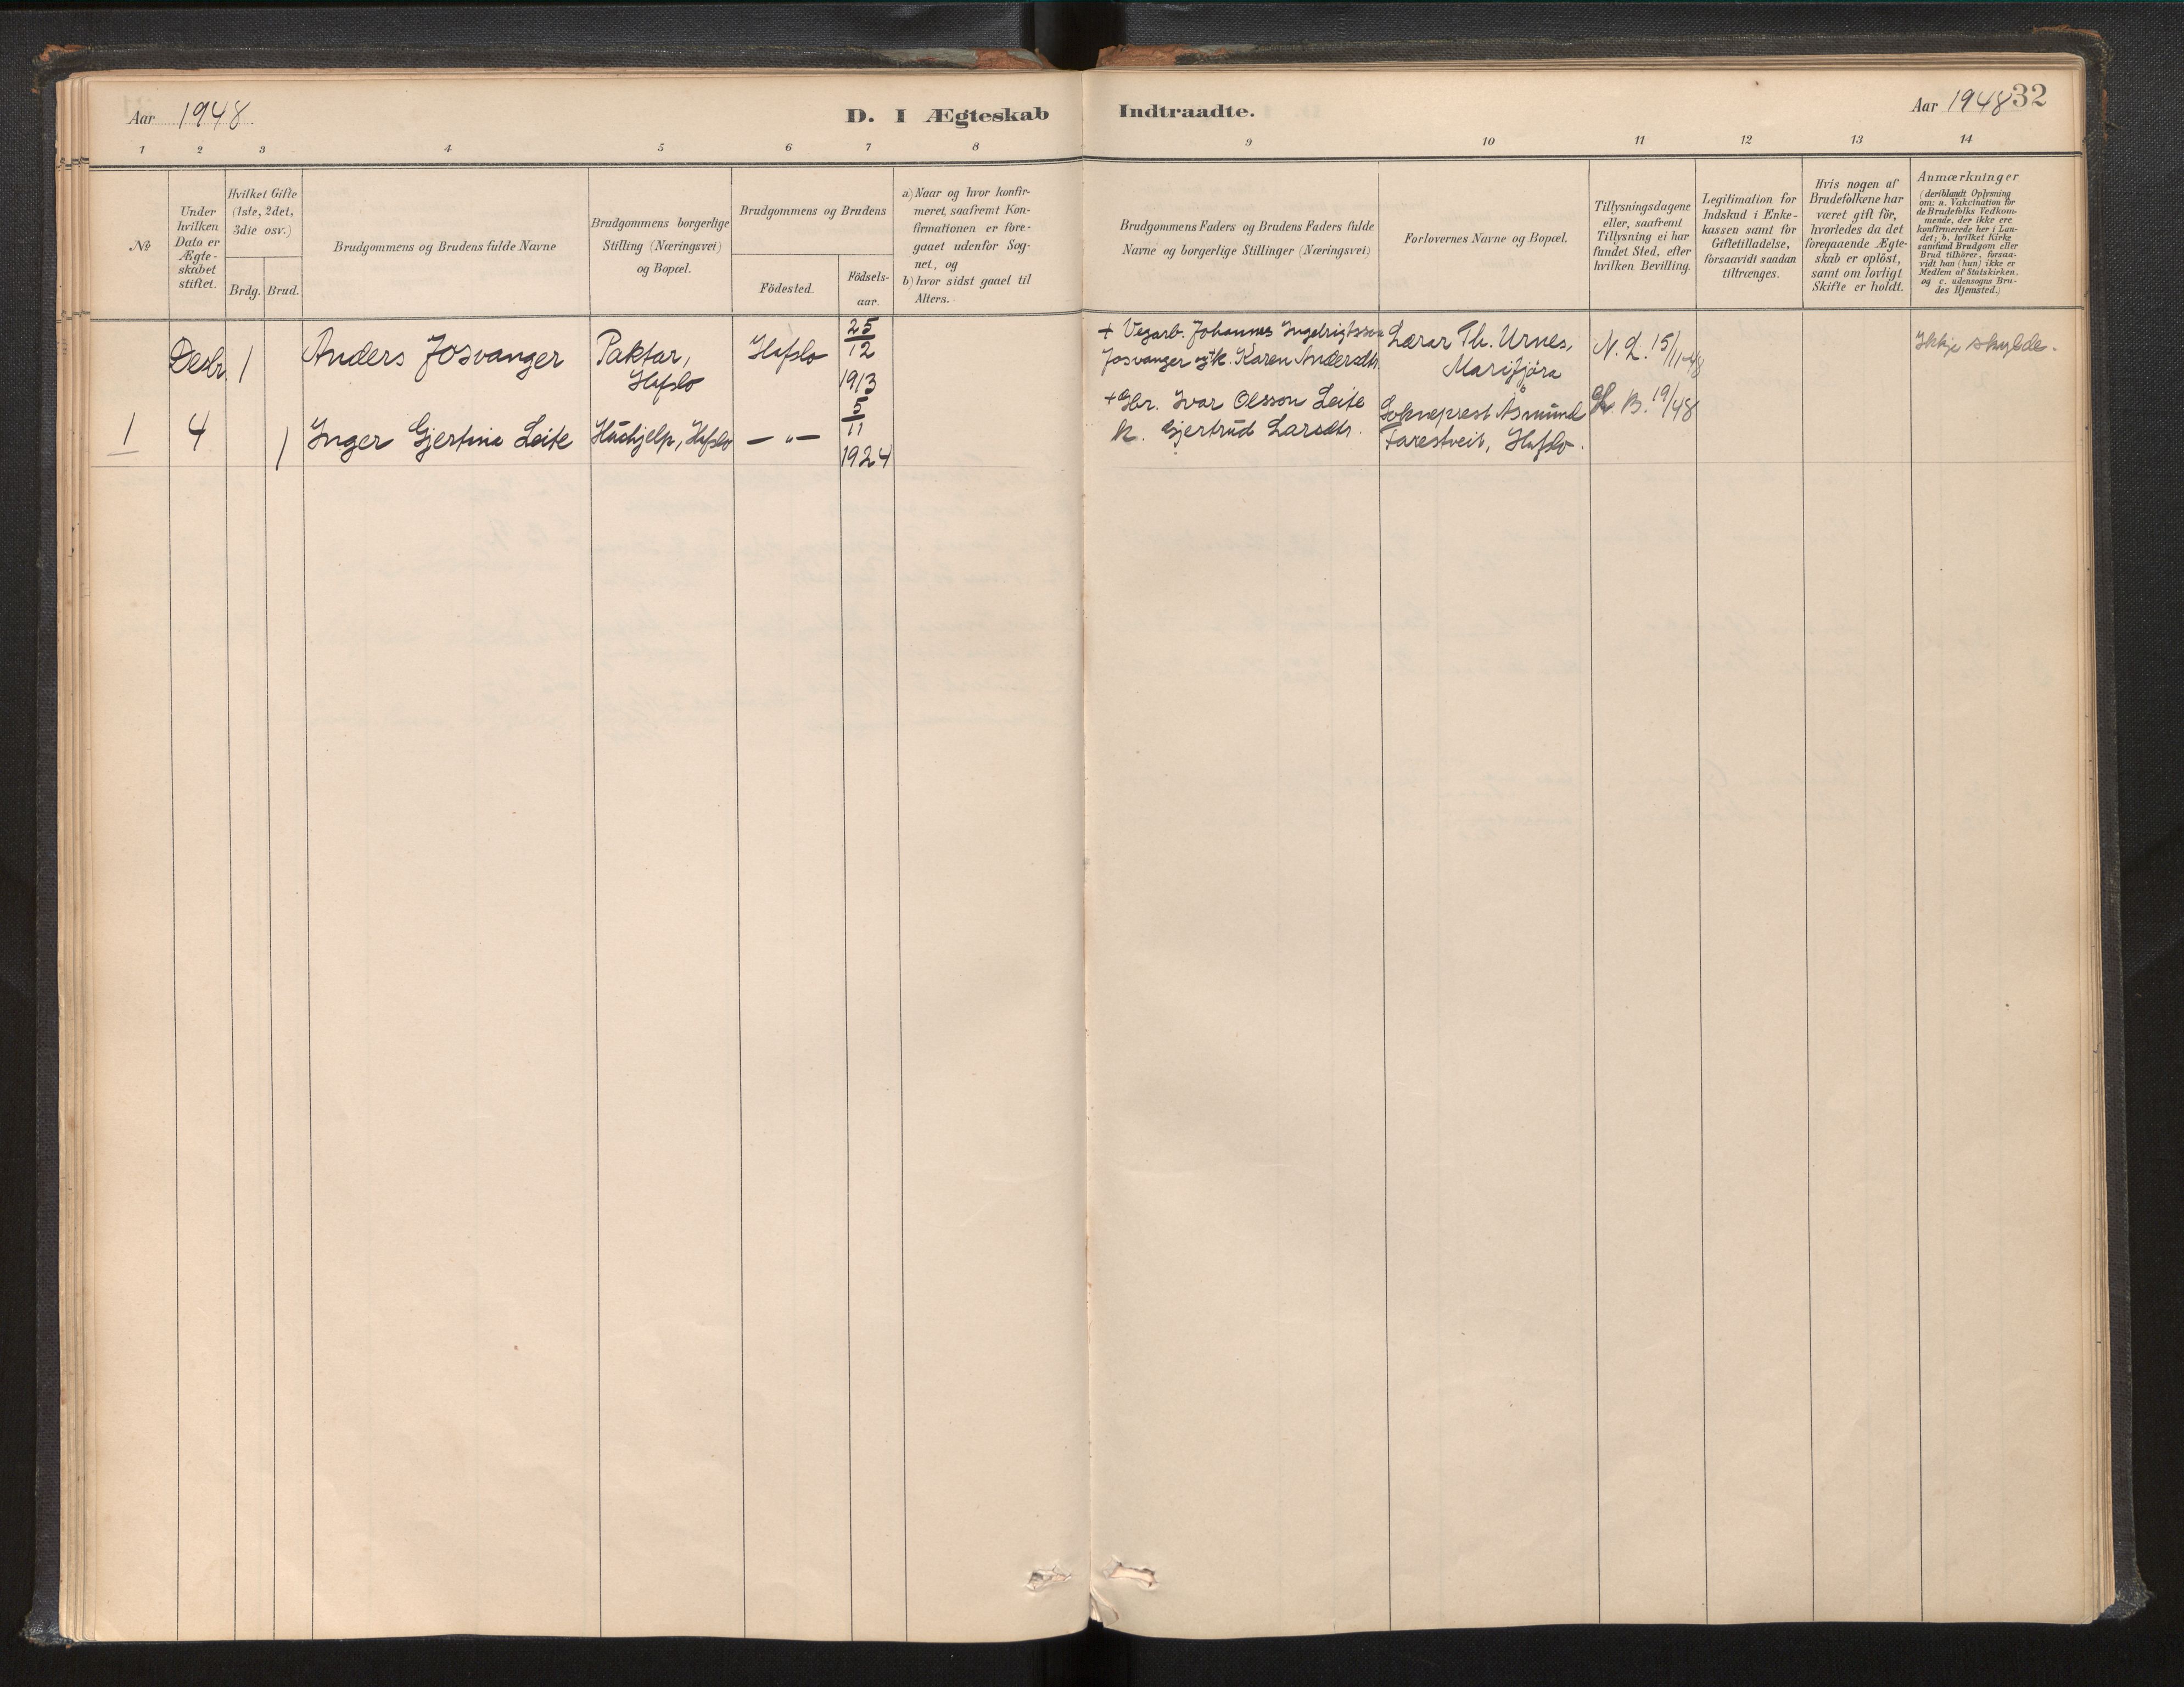 Aar 1948.
D. I Ægteskab Indtraadte.
Aar 1948 32
1 2 3 4 5 6 7 8 9 10 11 12 13 14
No
Under
hvilken
Dato er
Ægte-
skabet
stiftet.
Hvilket Gifte
(1ste, 2det,
3die osv.)
Brdg. Brud.
Brudgommens og Brudens fulde Navne
Brudgommens borgerlige
Stilling (Næringsvei)
og Bopæl.
Brudgommens og Brudens
Födested.
Födsels-
aar.
a) Naar og hvor konfir-
meret, saafremt Kon-
firmationen er fore-
gaaet udenfor Sog-
net, og
b) hvor sidst gaaet til
Alters.
Brudgommens Faders og Brudens Faders fulde
Navne og borgerlige Stillinger (Næringsvei)
Forlovernes Navne og Bopæl.
Tillysningsdagene
eller, saafremt
Tillysning ei har
fundet Sted, efter
hvilken Bevilling.
Legitimation for
Indskud i Enke-
kassen samt for
Giftetilladelse,
forsaavidt saadan
tiltrænges.
Hvis nogen af
Brudefolkene har
været gift för,
hvorledes da det
foregaaende Ægte-
skab er oplöst,
samt om lovligt
Skifte er holdt.
Anmærkninger
(deriblandt Oplysning
om: a. Vakcination for
de Brudefolks Vedkom-
mende, der ikke ere
konfirmerede her i Lan-
det; b. hvilket Kirke
samfund Brudgom eller
Brud tilhörer, forsaa-
vidt han (hun) ikke er
Medlem af Statskirken,
og c. udensogns Bru-
des Hjemsted.)
Desbr. 1 Anders Josvanger
Paktar,
Hafslo
Hafslo
25
12
1913
+ Vegarb. Johannes Ingebrigtsson
Josvanger og k. Karen Andersdtr.
Lærar Th. Urnes,
Marifjöra
N. L. 15/11-48
Ikkje skylde.
1 4 1 Inger Gjertine Leite
Håshjelp, Hafslo
— " —
5
11
1924
+ Gbr. Ivar Olsson Leite
k. Gjertrud Larsdtr.
Sokneprest Åsmund
Farestveit, Hafslo.
B. 19/48